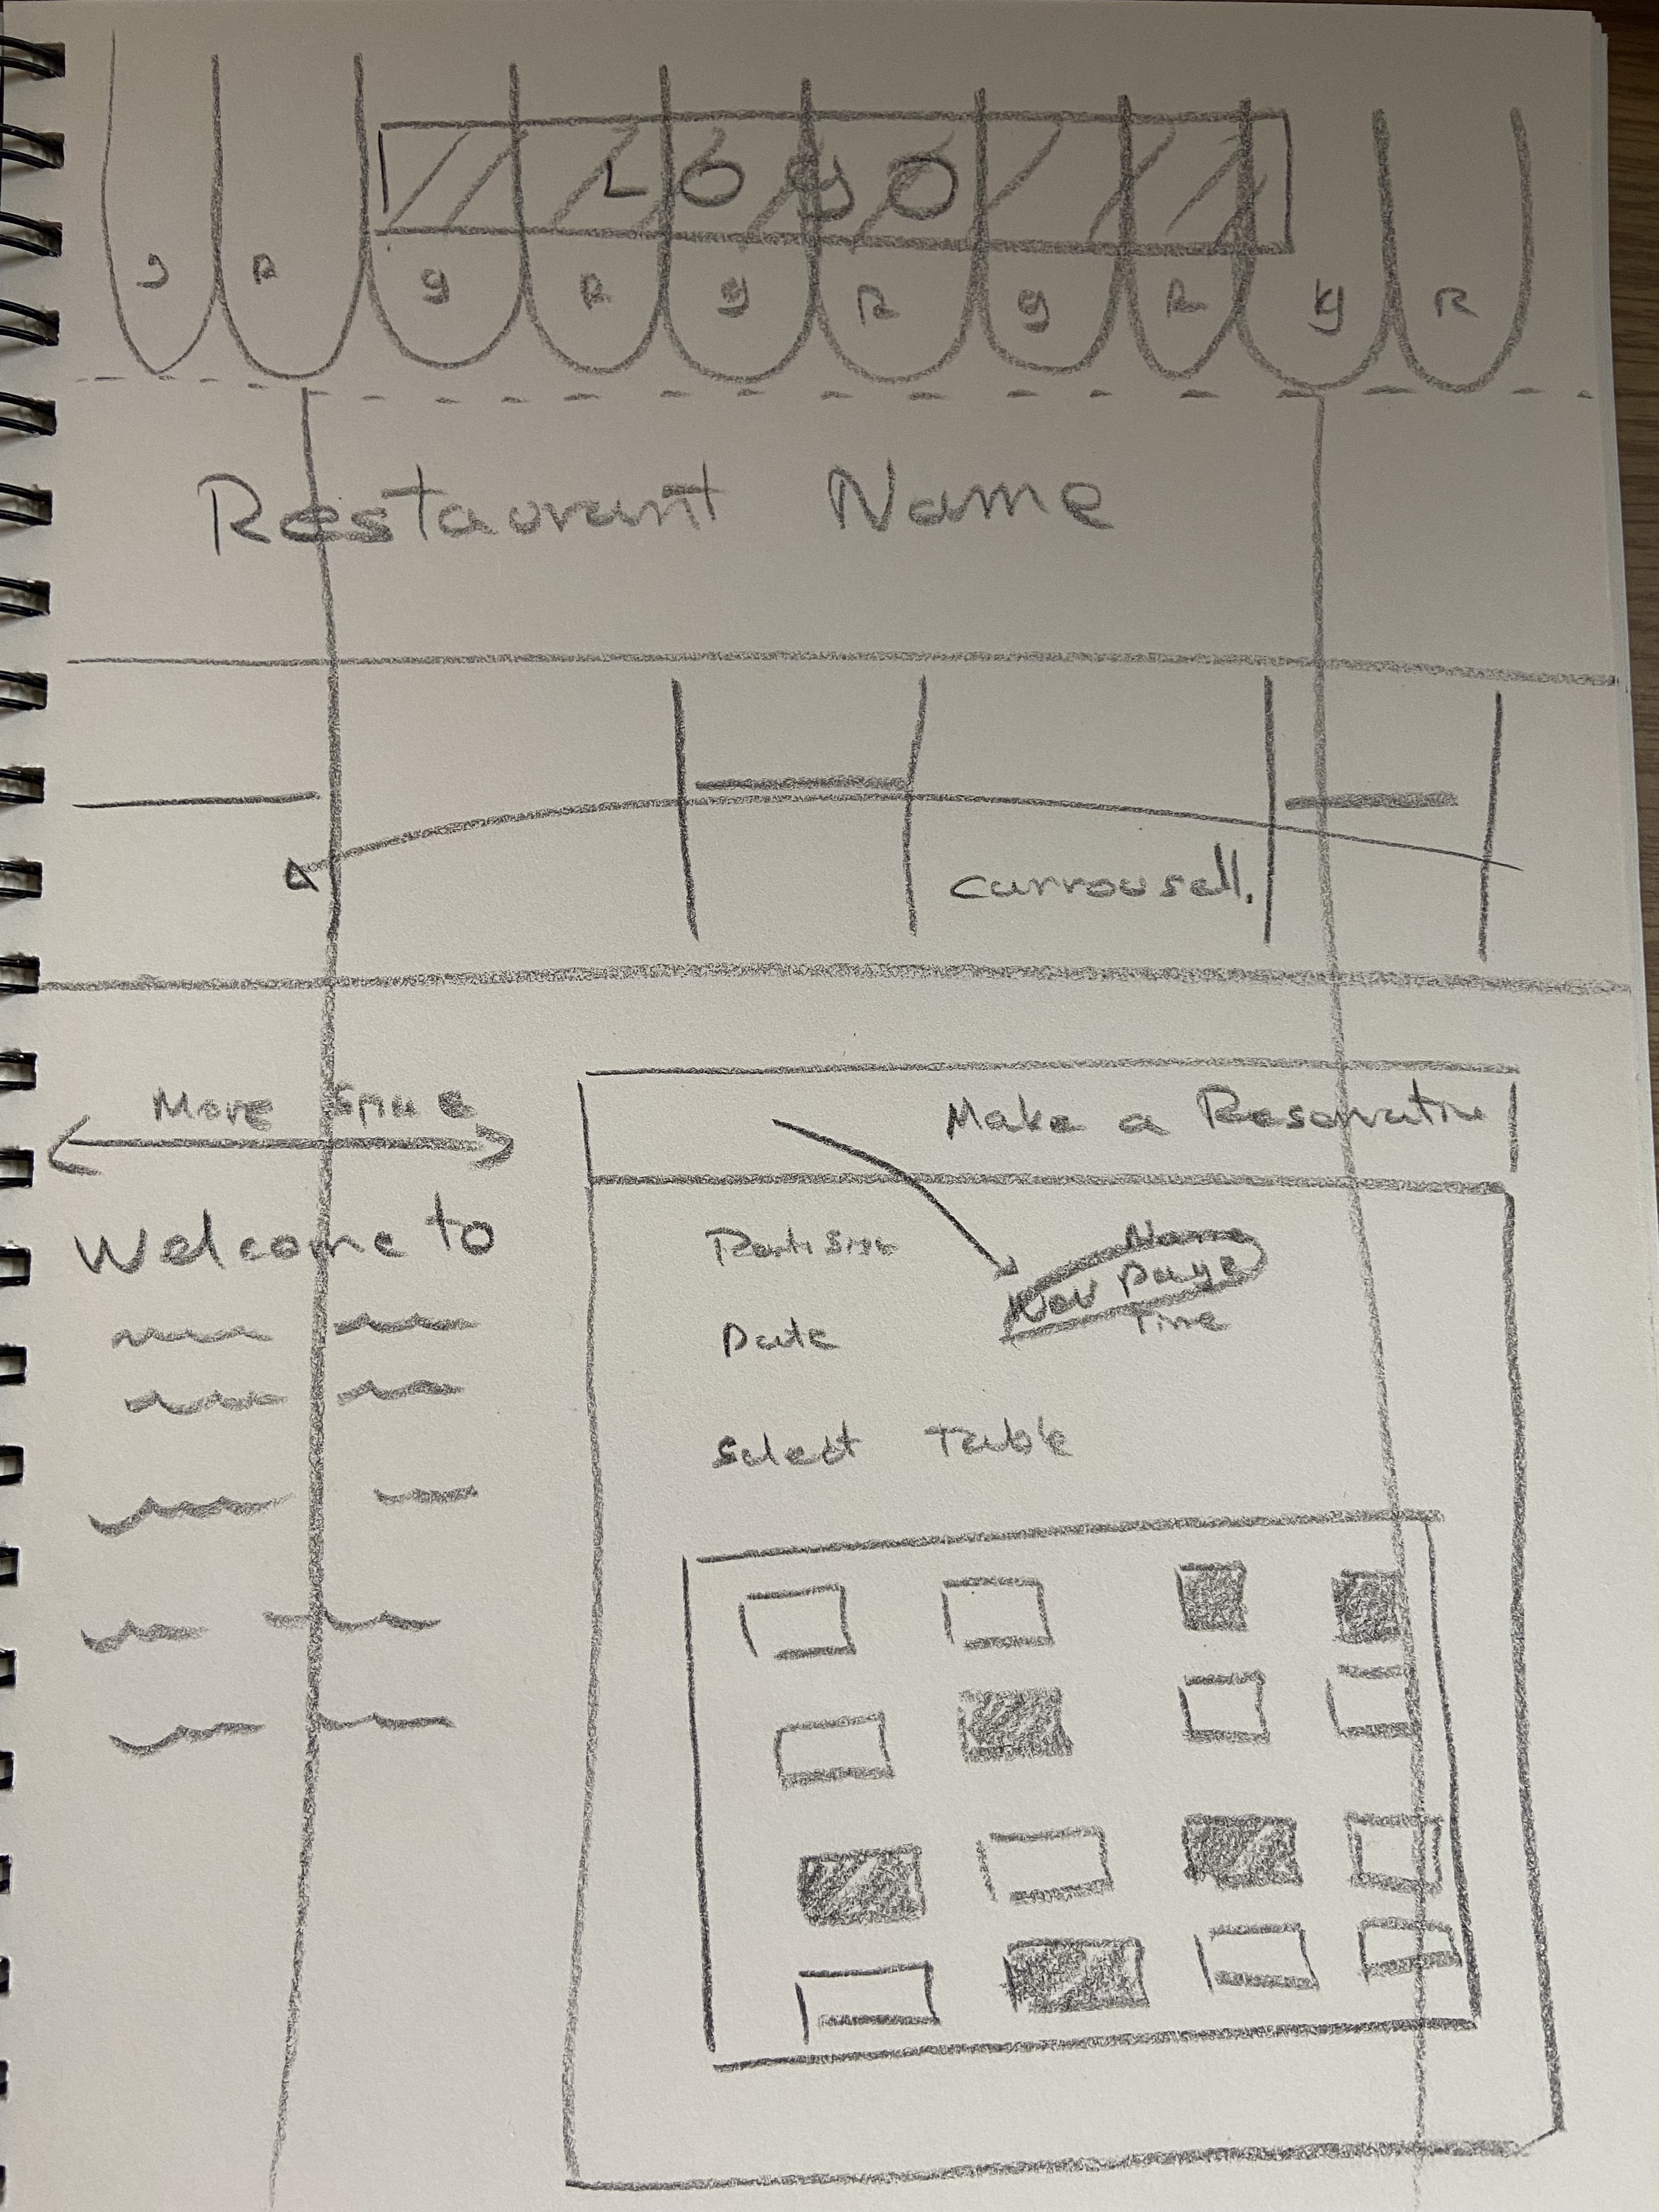 LOGO
g R g R g R g R y R
Restaurant Name
carrousell.
More Space
Make a Reservation
Welcome to
Parti Size Name
Nav Page
Date Time
Select Table